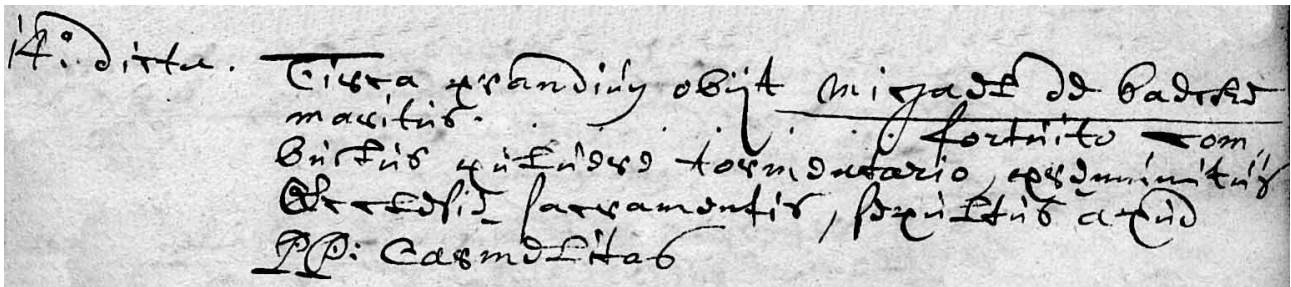 14°: dicta. Circa prandiũ obijt Michael de backer
maritus. . . . . . . . fortuito com,,
bustus puluere tormentario, præmunitus
Ecclesiæ sacramentis, sepultus apud
PP: Carmelitas